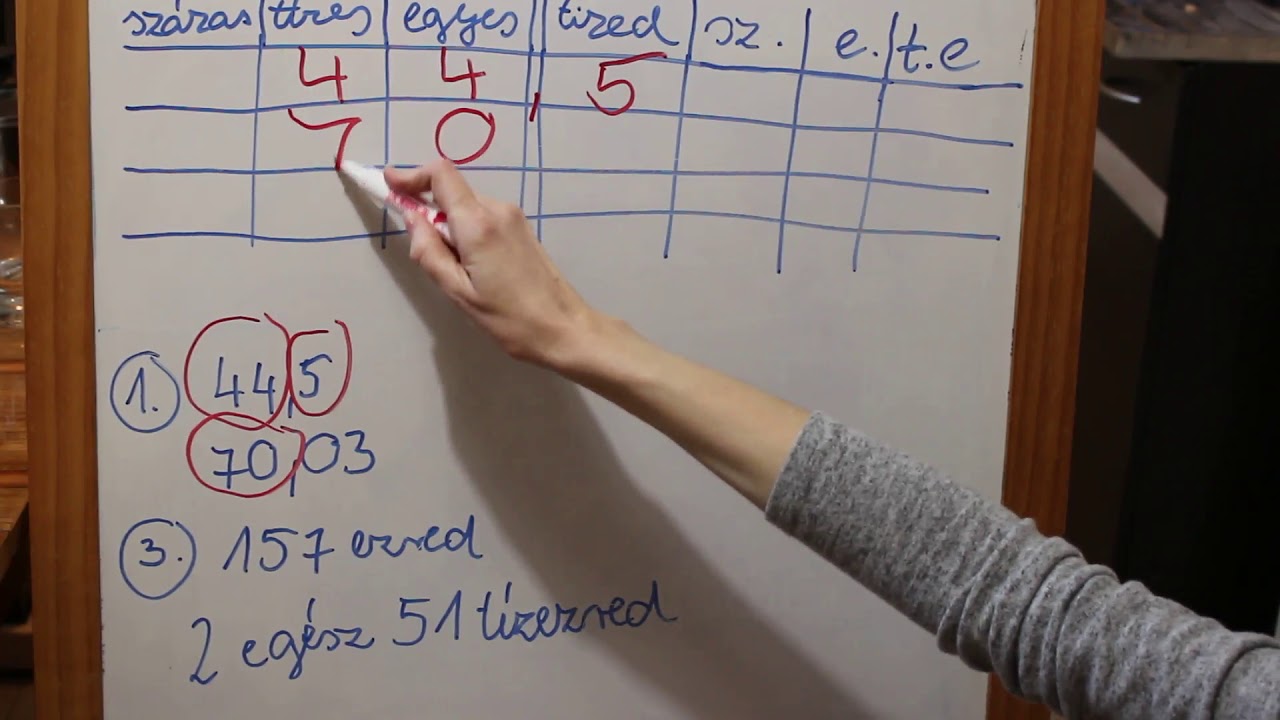 százas tízes egyes , tized sz. e. t.e
4 4 , 5
7 0
1. 44,5
70,03
3. 157 ezred
2 egész 51 tízezred